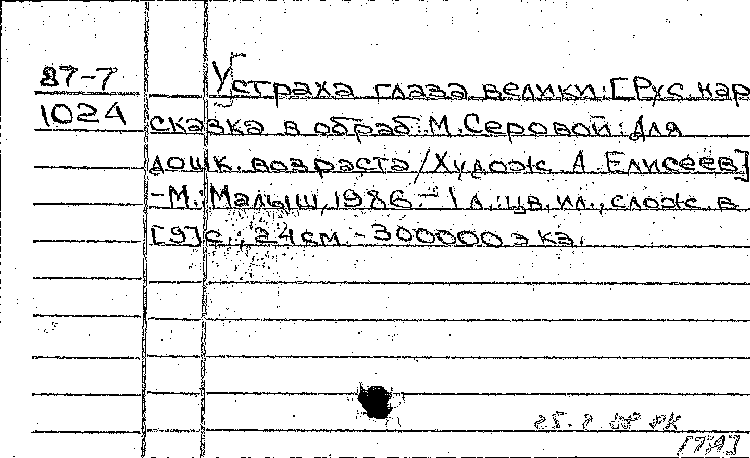 87-7
1024
У страха глаза велики: [Рус. нар.
сказка в обраб. М. Серовой: Для
дошк. возраста / Худож. А. Елисеев]
- М.: Малыш, 1986. - 1 л.: цв. ил., слож. в
[9] с.; 24 см. - 300000 экз.
[7,9]